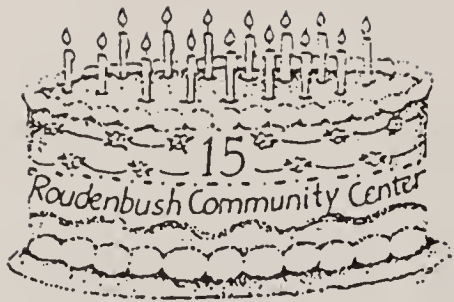 15
Roudenbush Community Center